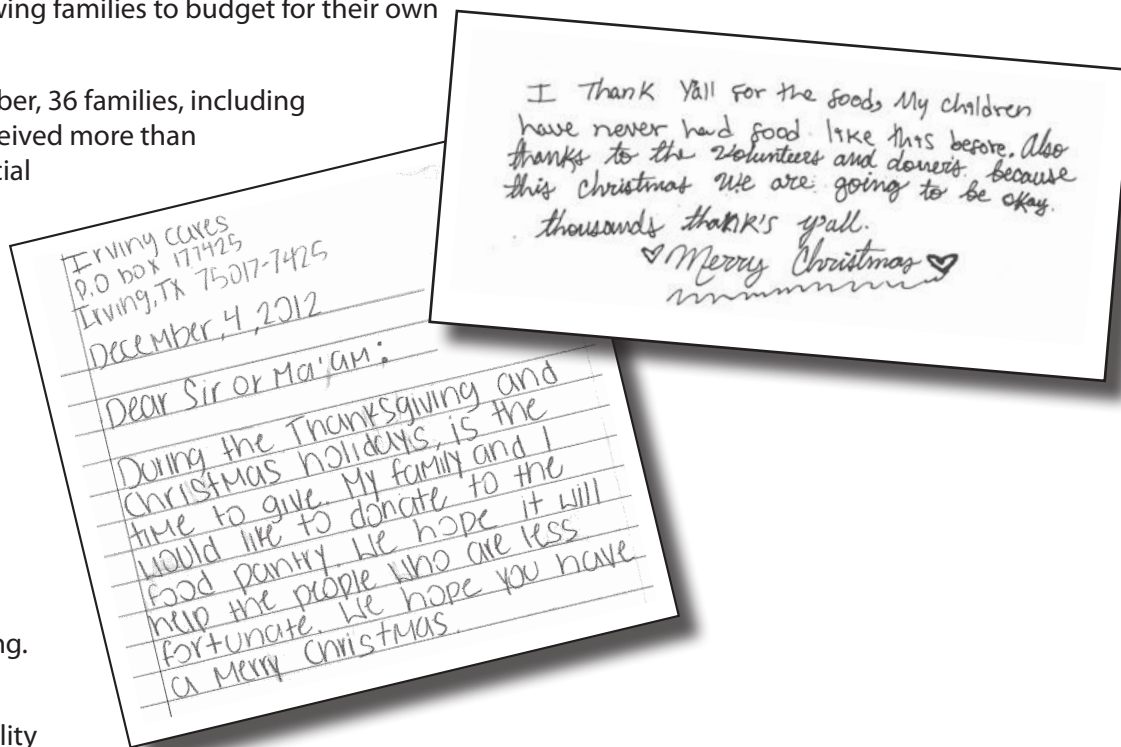 wing families to budget for their own
ber, 36 families, including
eived more than
ial
ng.
lity
Irving cares
P.O box 177425
Irving, TX 75017-7425
December, 4, 2012
Dear Sir or Ma'am:
During the Thanksgiving and
Christmas holidays, is the
time to give. My family and I
would like to donate to the
food pantry. We hope it will
help the people who are less
fortunate. We hope you have
a Merry Christmas.
I Thank Yall for the food, My children
have never had food like this before. Also
thanks to the volunteers and doners. because
this christmas we are going to be okay.
thousands thank's y'all.
♡Merry Christmas♡